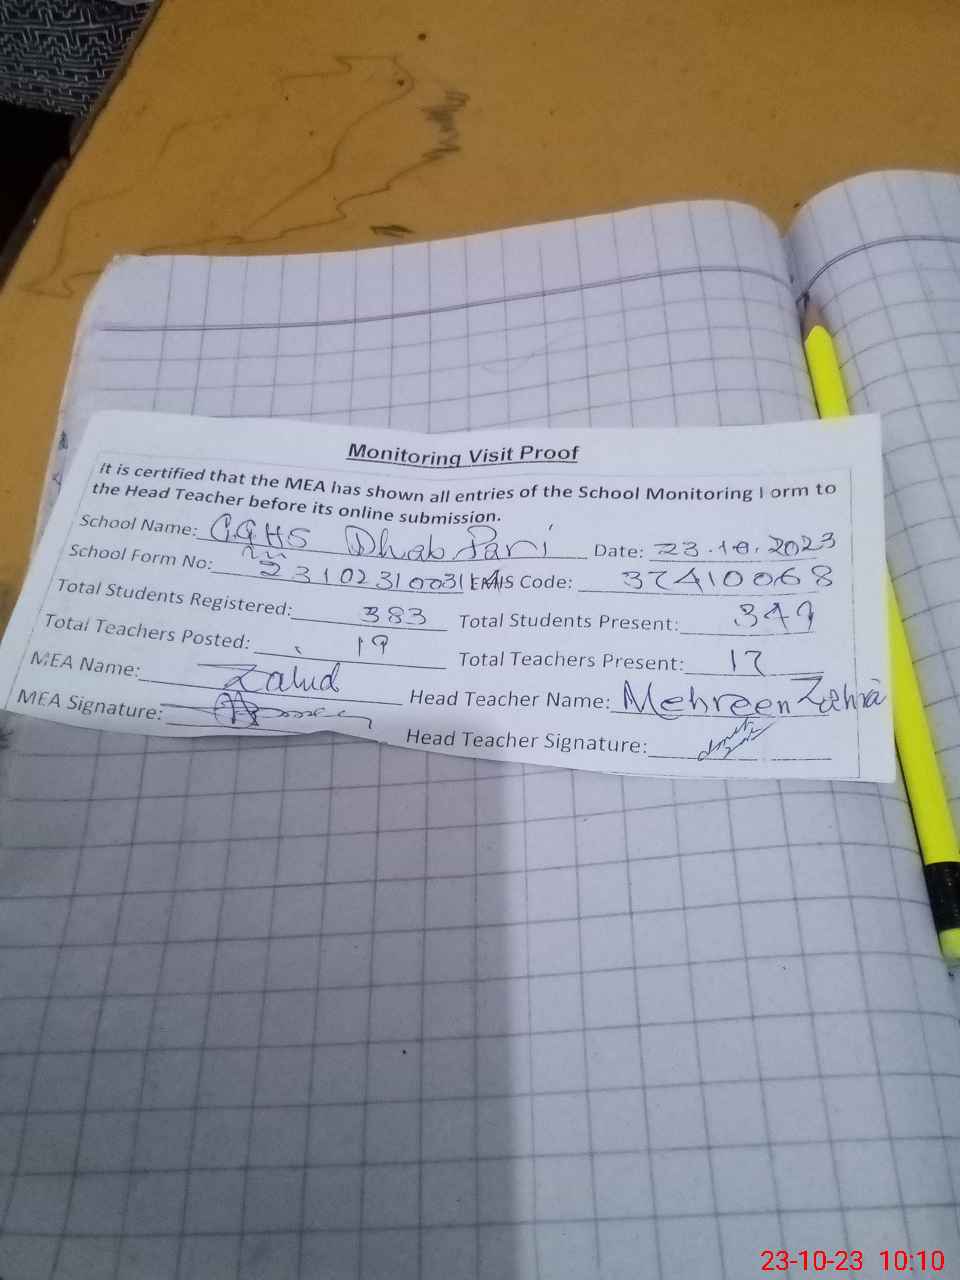 Monitoring Visit Proof
It is certified that the MEA has shown all entries of the School Monitoring Form to
the Head Teacher before its online submission.
School Name: GGHS Dhab Pari Date: 23.10.2023
School Form No: 23102310031 EMIS Code: 37410068
Total Students Registered: 383 Total Students Present: 349
Total Teachers Posted: 19 Total Teachers Present: 17
MEA Name: Zahid Head Teacher Name: Mehreen Zehra
MEA Signature: Head Teacher Signature:
23-10-23 10:10